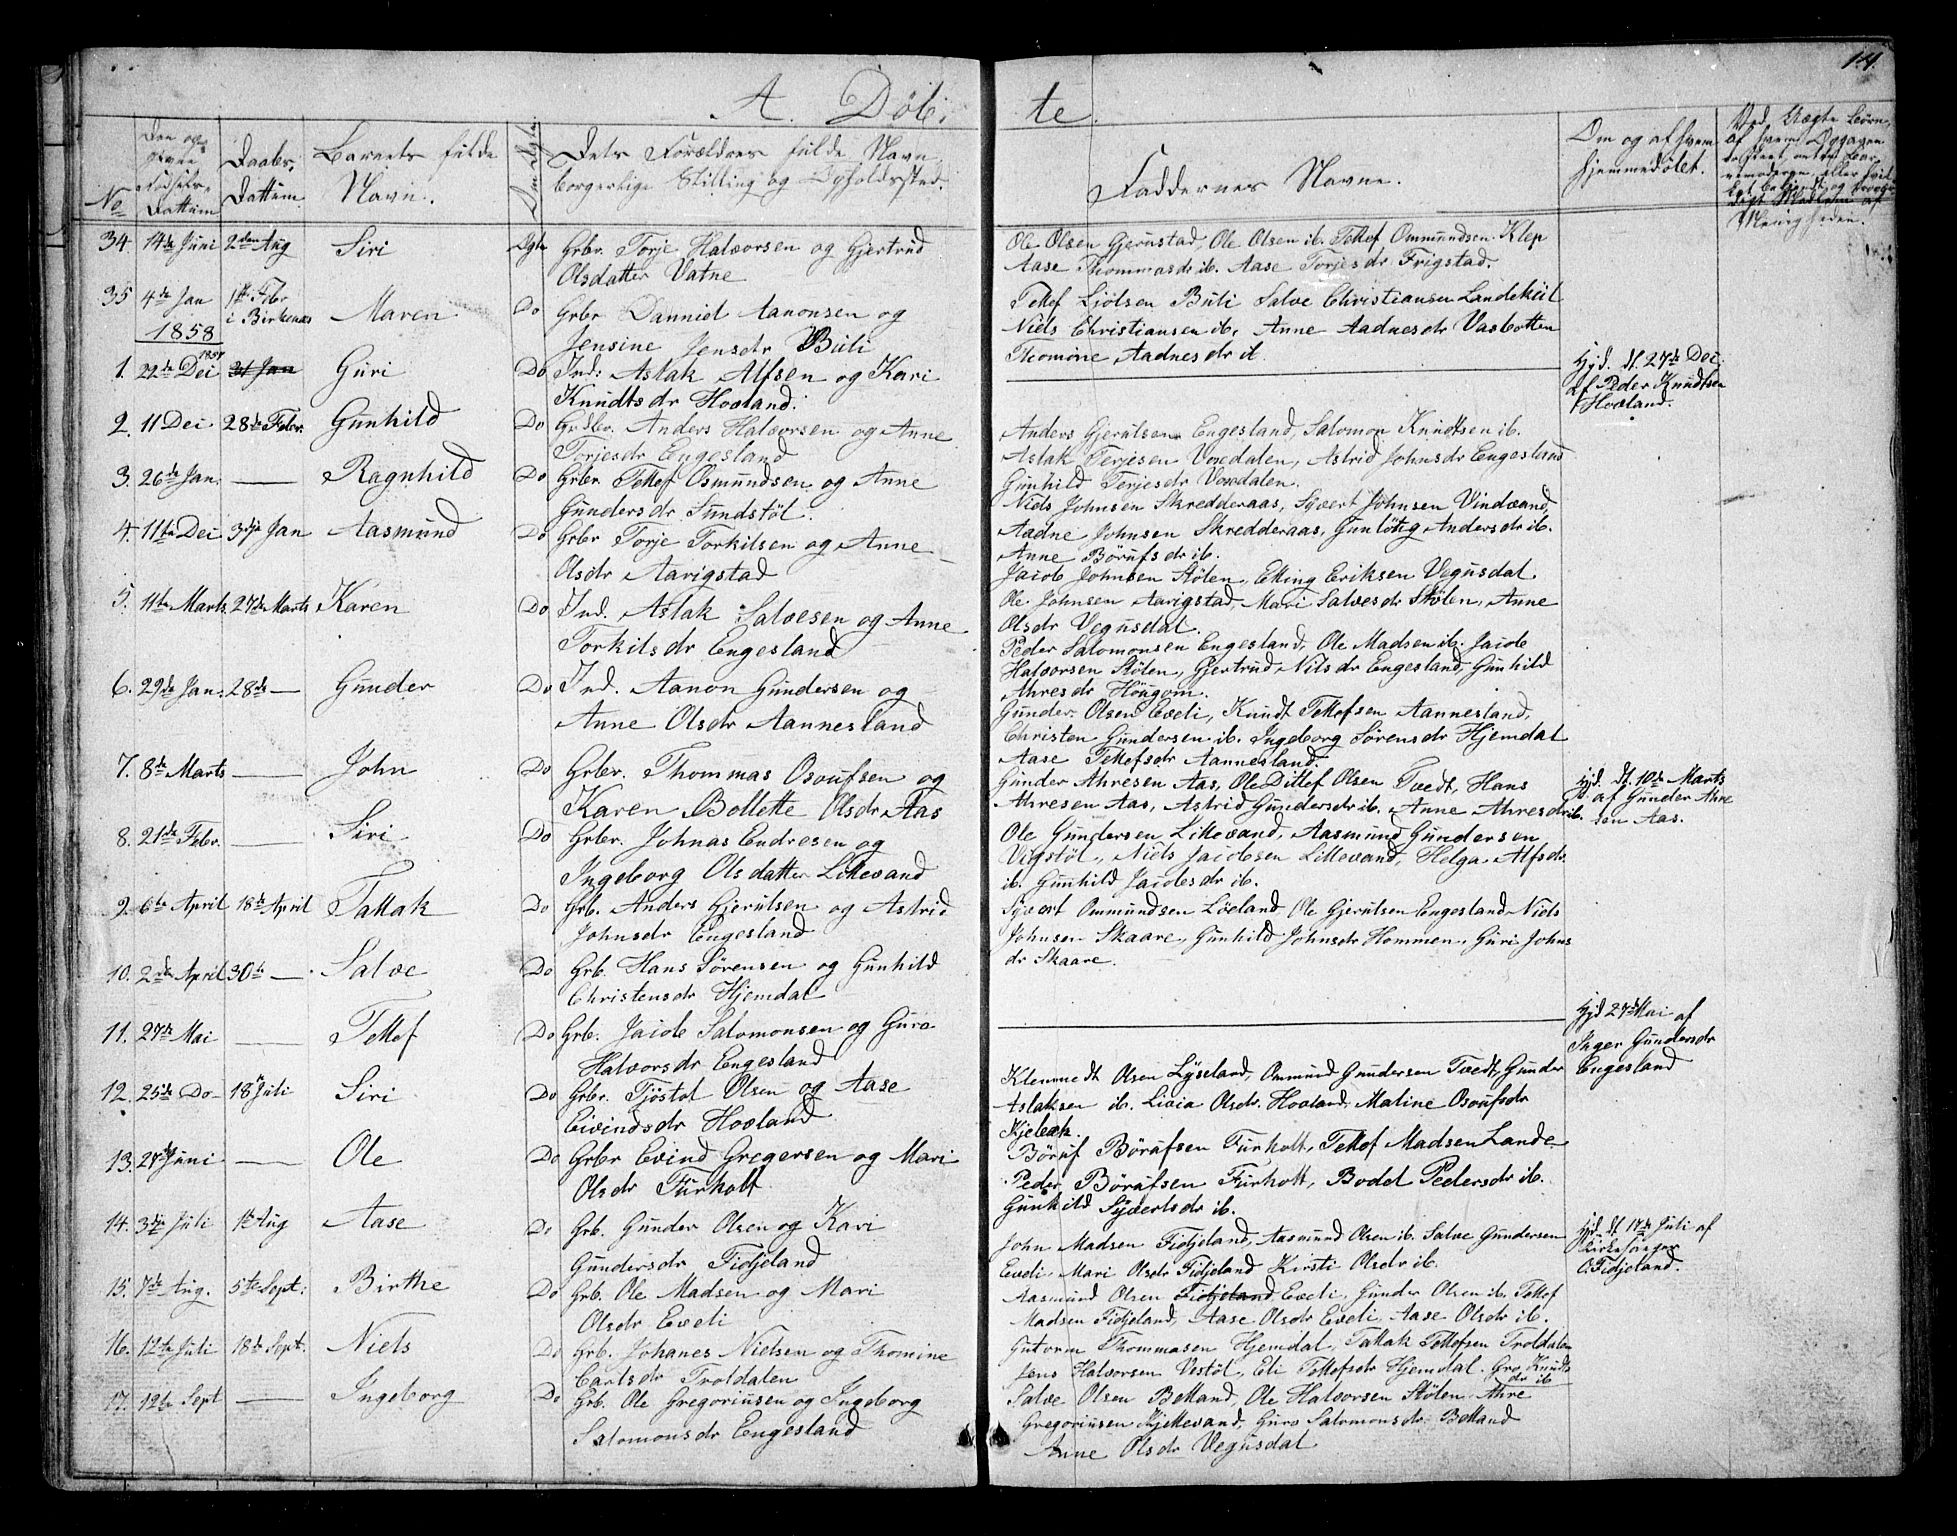 14.
A. Døb-
te.
No
Daabs-
Dattum.
Barnets fulde
Navn.
Dets Forældres fulde Navn,
borgerlige Stilling og Opholdssted.
Faddernes Navne.
Om og af hvem
hjemmedøbt.
34. 14de Juni 2den Aug Siri Ægte Grbr. Torje Halvorsen og Gjertrud
Olsdatter Vatne
Ole Olsen Gjerustad, Ole Olsen ib. Tellef Ommundsen Klep
Aase Thommasdr ib. Aase Torjesdr Frigstad.
35 4de Jan 1ste Febr
i Birkenæs Maren Do Grbr Danniel Aanonsen og
Jensine Jensdr Buli
Tellef Liølsen Buli Salve Christiansen Landekiil
Niels Christiansen ib, Anne Aadnesdr Vasbotten
Thomine Aadnesdr ib.
1858
1. 22de Dec 1857 31 Jan Guri Do Ind: Aslak Alfsen og Kari
Knudtsdr Hovland.
Hjd. d. 27de Dec.
af Peder Knudtsen
Hovland.
2. 11 Dec 28de Febr. Gunhild Do Grdbr. Anders Halvorsen og Anne
Torjesdr Engesland
Anders Gjerulsen Engesland, Salomon Knudtsen ib.
Aslak Terjesen Voxedalen, Astrid Johnsdr Engesland
Gunhild Terjesdr Voxedalen.
3. 26de Jan. — Ragnhild Do Grbr. Tellef Osmundsen og Anne
Gundersdr Sundstøl.
Niels Johnsen Skredderaas, Syvert Johnsen Vindvand,
Aadne Johnsen Skredderaas, Gunlöug Andersdr ib.
Anne Börufsdr ib.
4. 11te Dec 3die Jan Aasmund Do Grbr Torje Torkilsen og Anne
Olsdr Aarigstad
Jacob Johnsen Stølen, Elling Eriksen Vegusdal
Ole Johnsen Aarigstad, Mari Salvesdr Stølen, Anne
Olsdr Vegusdal.
5. 11te Marts 27de Marts Karen Do Ind. Aslak Salvesen og Anne
Torkilsdr Engesland
Peder Salomonsen Engesland, Ole Madsen ib. Jacob
Halvorsen Stølen, Gjertrud Nilsdr Engesland, Gunhild
Ahresdr Höugom.
6. 29de Jan: 28de — Gunder Do Ind. Aanon Gundersen og
Anne Olsdr Aannesland
Gunder Olsen Eveli, Knudt Tellefsen Aannesland,
Christen Gundersen ib. Ingeborg Sørensdr Hjemdal
Aase Tellefsdr Aannesland.
7. 8de Marts — John Do Grbr. Thommas Osoufsen og
Karen Bollette Olsdr Aas
Gunder Ahresen Aas, Ole Ditlef Olsen Tvedt, Hans
Ahresen Aas, Astrid Gundersdr ib. Anne Ahresdr ib.
Hjd. d. 10de Marts
af Gunder Ahre
sen Aas.
8. 21de Febr. — Siri Do Grbr. Johnas Endresen og
Ingeborg Olsdatter Lillevand
Ole Gundersen Lillevand, Aasmund Gundersen
Vegstøl, Niels Jacobsen Lillevand, Helga Alfsdr
ib. Gunhild Jacobsdr ib.
9. 6te April 18de April Tallak Do Grb. Anders Gjerulsen og Astrid
Johnsdr Engesland
Syvert Ommundsen Löeland Ole Gjerulsen Engesland Niels
Johnsen Skaare, Gunhild Johnsdr Hommen. Guri Johns
dr Skaare.
10. 2den April 30te — Salve Do Grb. Hans Sørensen og Gunhild
Christensdr Hjemdal
11. 27de Mai — Tellef Do Grb. Jacob Salomonsen og Guro
Halvorsdr Engesland
Hjd 27de Mai af
Gundersdr
Engesland
12. 25de Do — 18 Juli Siri Do Grbr. Tjöstol Olsen og Aase
Eivindsdr Hovland
Klemmedt Olsen Lyseland, Ommund Gundersen Tvedt, Gunder
Aslaksen ib. Livia Olsdr. Hovland, Maline Osoufsdr
Kjebæk.
13. 27de Juni — Ole Do Grbr Evind Gregersen og Mari
Olsdr Furholt
Böruf Börufsen Furholt, Tellef Madsen Lande
Peder Börufsen Furholt, Bodel Pedersdr ib.
Gunhild Syvertsdr ib.
14. 3die Juli 1ste Aug Aase Do Grb. Gunder Olsen og Kari
Gundersdr Fidjeland
John Madsen Fidjeland, Aasmund Olsen ib. Salve Gundersen
Eveli Mari Olsdr Fidjeland Kirsti Olsdr ib.
Hjd. d. 17de Juli af
Kirkesanger
O. Fidjeland.
15. 7de Aug. 5te Sept: Birthe Do Grb. Ole Madsen og Mari
Olsdr Eveli
Aasmund Olsen Fidjeland Eveli, Gunder Olsen ib. Tellef
Madsen Fidjeland, Aase Olsdr Eveli, Aase Olsdr ib.
16. 12te Juli 18de Sept. Niels Do Grb. Johanes Nielsen og Thomine
Carlsdr Troldalen
Gutorm Thommasen Hjemdal, Tallak Tellefsen Troldalen
Jens Halvorsen Vestøl, Eli Tellefsdr Hjemdal. Gro Knudts
dr ib
17. 12te Sept — Ingeborg Do Grb. Ole Gregoriusen og Ingeborg
Salomonsdr Engesland
Salve Olsen Belland, Ole Halvorsen Stølen, Ahre
Gregoriusen Kjellevand, Guro Salomonsdr Belland
Anne Olsdr Vegusdal